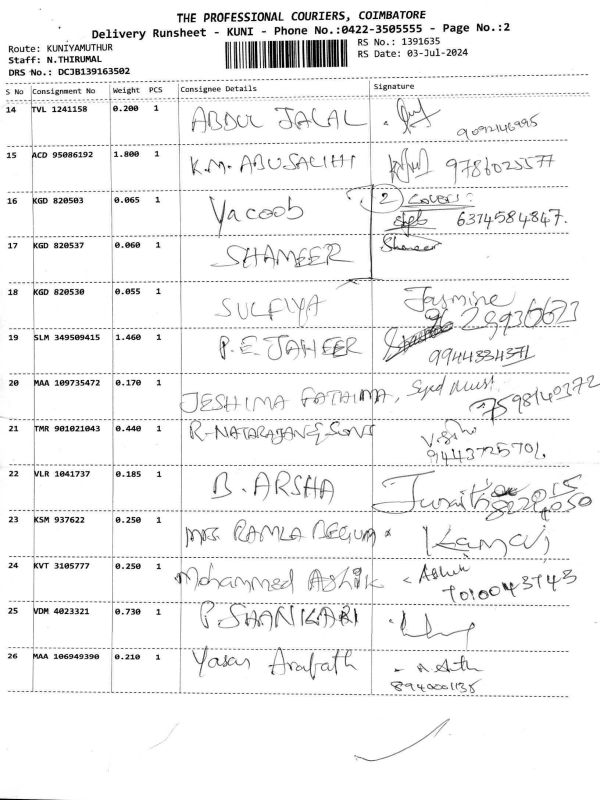 THE PROFESSIONAL COURIERS, COIMBATORE
Delivery Runsheet - KUNI - Phone No.:0422-3505555 - Page No.:2
Route: KUNIYAMUTHUR
RS No.: 1391635
Staff: N.THIRUMAL
RS Date: 03-Jul-2024
DRS No.: DCJB139163502
S No Consignment No Weight PCS Consignee Details Signature
14 TVL 1241158 0.200 1 ABDUL JALAL
9092146995
15 ACD 95086192 1.800 1 K.M. ABUSALIHI 9786025577
16 KGD 820503 0.065 1 Yacoob 2 COVERS:
6374584847.
17 KGD 820537 0.060 1 SHAMEER Shameer
18 KGD 820530 0.055 1 SULFIYA Jasmine
19 SLM 349509415 1.460 1 P.E. JAHEER
9944334371
20 MAA 109735472 0.170 1 JESHIMA FATHIMA, Syed
7598140372
21 TMR 901021043 0.440 1 R-NATARAJAN & SONS
9443725701.
22 VLR 1041737 0.185 1 B. ARSHA
23 KSM 937622 0.250 1 MRS RAMLA BEGUM Kamaj
24 KVT 3105777 0.250 1 Mohammed Ashik Ashik
7010043743
25 VDM 4023321 0.730 1 P. SHANKARI
26 MAA 106949390 0.210 1 Yasar Arafath
8940001138